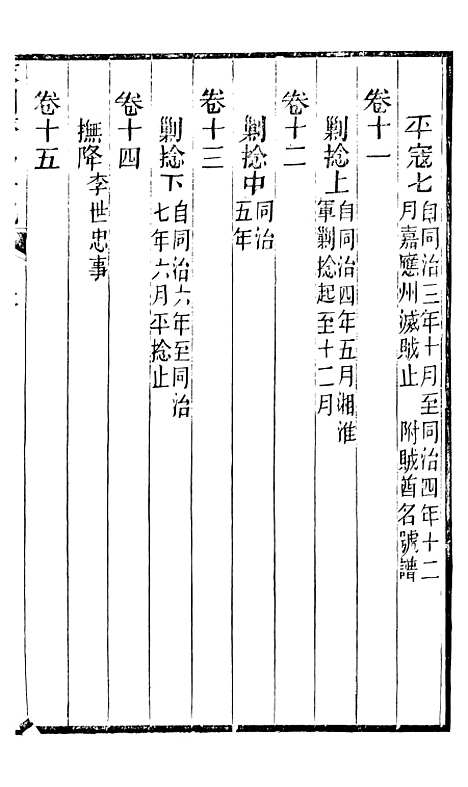 平寇七 自同治三年十月至同治四年十二
月嘉應州滅賊止 附賊酋名號譜
卷十一
剿捻上 自同治四年五月湘淮
軍剿捻起至十二月
卷十二
剿捻中 同治
五年
卷十三
剿捻下 自同治六年至同治
七年六月平捻止
卷十四
撫降 李世忠事
卷十五